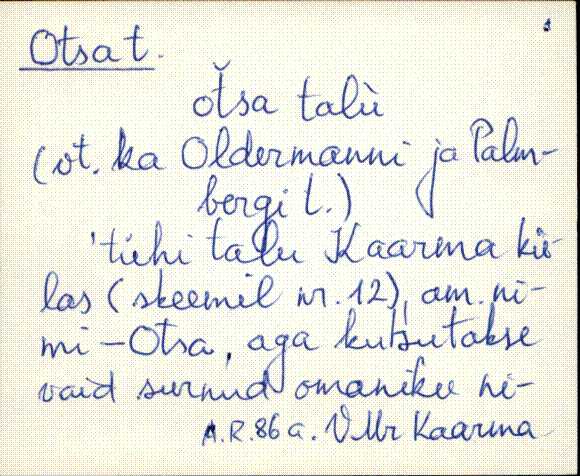 Otsa t.
otsa talù
(vt. ka Oldermanni ja Palm-
bergi t.)
'tühi talu Kaarma kü-
las (skeemil nr. 12), am. ni-
mi - Otsa, aga kutsutakse
vaid surnud omaniku ni-
A.R. 86 a. VMr Kaarma